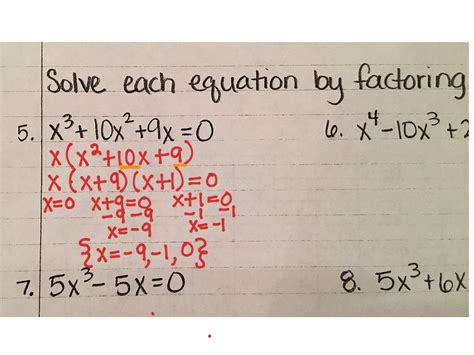 Solve each equation by factoring
5. x³+10x²+9x=0
6. x⁴-10x³+2
x(x²+10x+9)
x(x+9)(x+1)=0
x=0 x+9=0 x+1=0
-9 -9 -1 -1
x=-9 x=-1
{x=-9,-1,0}
7. 5x³-5x=0
8. 5x³+6x